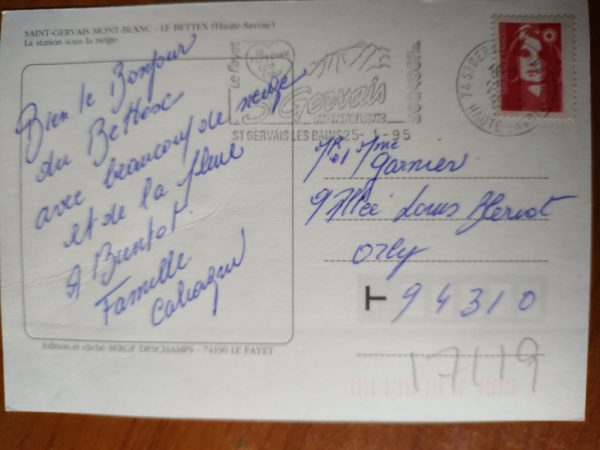 SAINT-GERVAIS MONT-BLANC - LE BETTEX (Haute-Savoie)
La station sous la neige.
Bien le Bonjour
du Bettex
avec beaucoup de neige
et de la pluie
A Bientot
Famille
Edition et cliché SERGE DESCHAMPS - 74190 LE FAYET
Le Fayet
St Gervais
MONT BLANC
ST GERVAIS LES BAINS 25-1-95
74 ST GERVAIS
HAUTE SAVOIE
Mr et Mme
Garnier
9 Allée Louis
Orly
T 94310
17/19